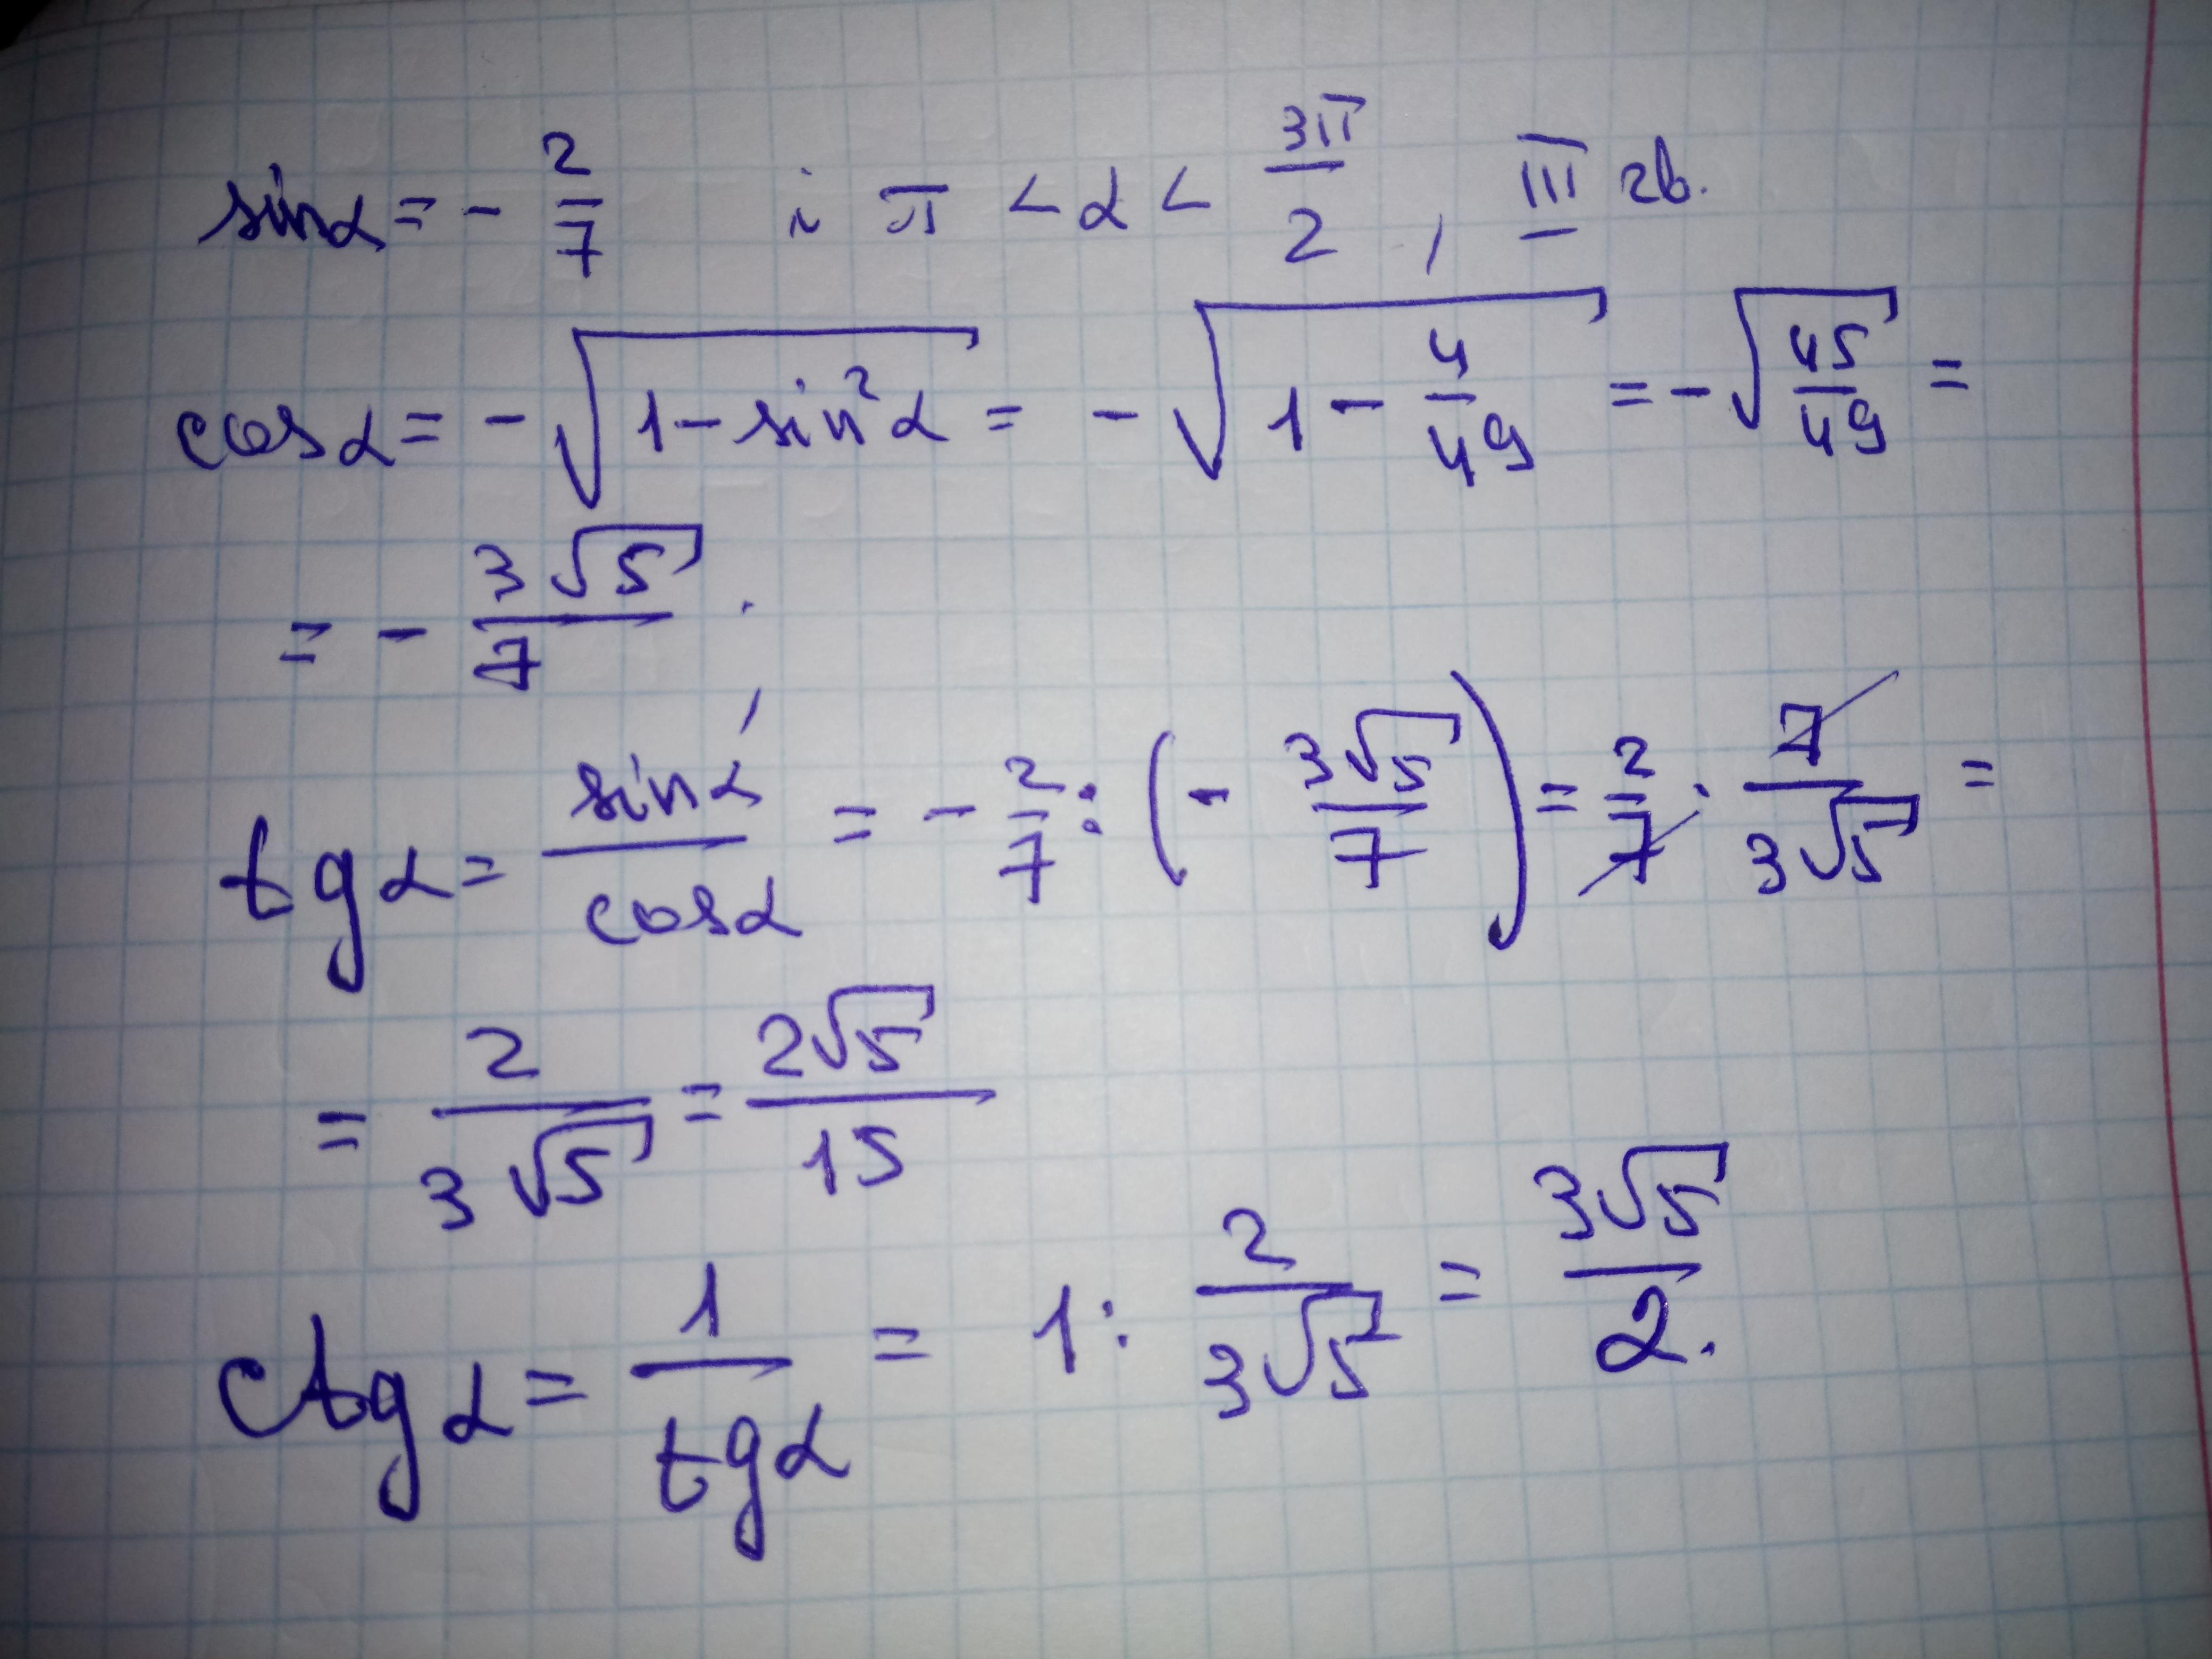 sinα = - 2/7 і π < α < 3π/2, III чв.
cosα = - √(1 - sin²α) = - √(1 - 4/49) = - √(45/49) =
= - 3√5/7;
tgα = sinα/cosα = - 2/7 : (- 3√5/7) = 2/7 · 7/3√5 =
= 2/3√5 = 2√5/15
ctgα = 1/tgα = 1 : 2/3√5 = 3√5/2.